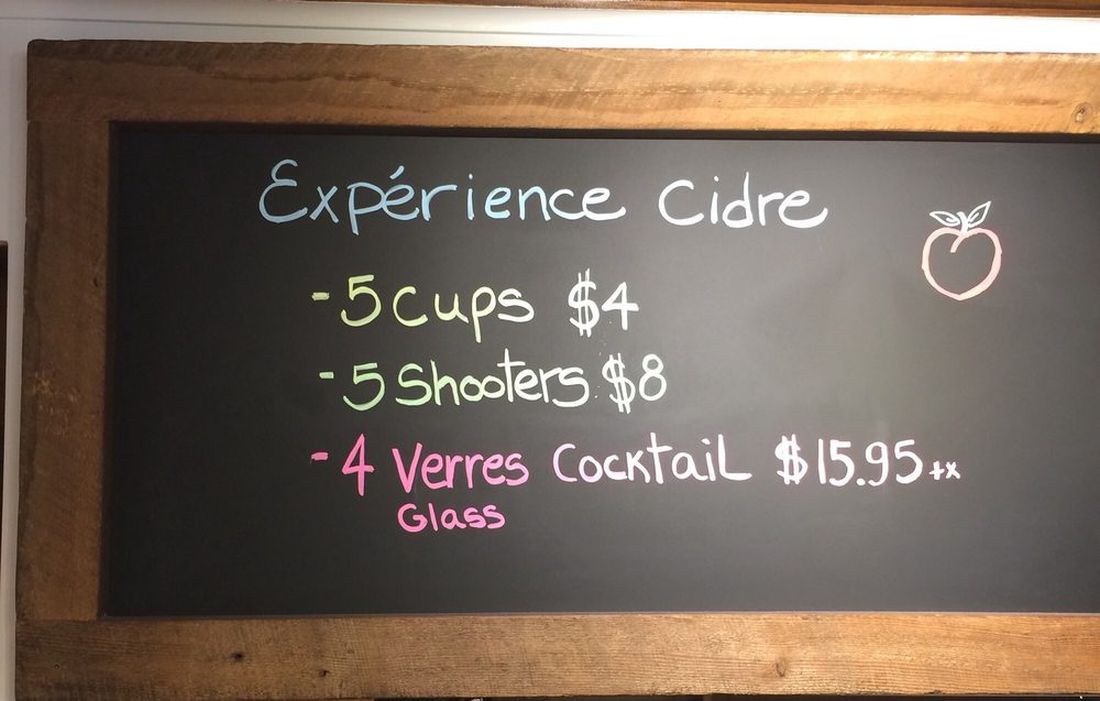 Expérience Cidre
- 5 Cups $4
- 5 Shooters $8
- 4 Verres Cocktail $15.95 +x
Glass